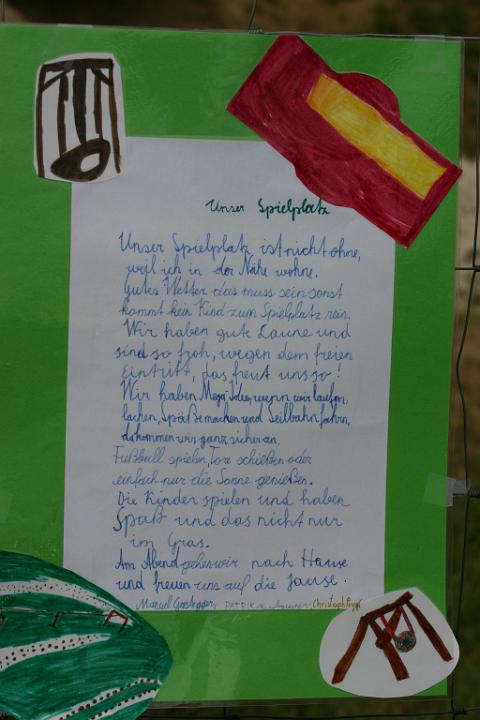 Unser Spielplatz
Unser Spielplatz ist nicht ohne,
weil ich in der Nähe wohne.
Gutes Wetter das muss sein sonst
kommt kein Kind zum Spielplatz rein.
Wir haben gute Laune und
sind so froh, wegen dem freien
Eintritt, das freut uns so!
Wir haben Mega Idee, wenn wir laufen,
lachen, Späße machen und Seilbahn fahrn,
da kommen wir ganz sicher an.
Fußball spielen, Tore schießen oder
einfach nur die Sonne genießen.
Die Kinder spielen und haben
Spaß und das nicht nur
im Gras.
Am Abend gehen wir nach Hause
und freuen uns auf die Jause.
Manuel Christoph